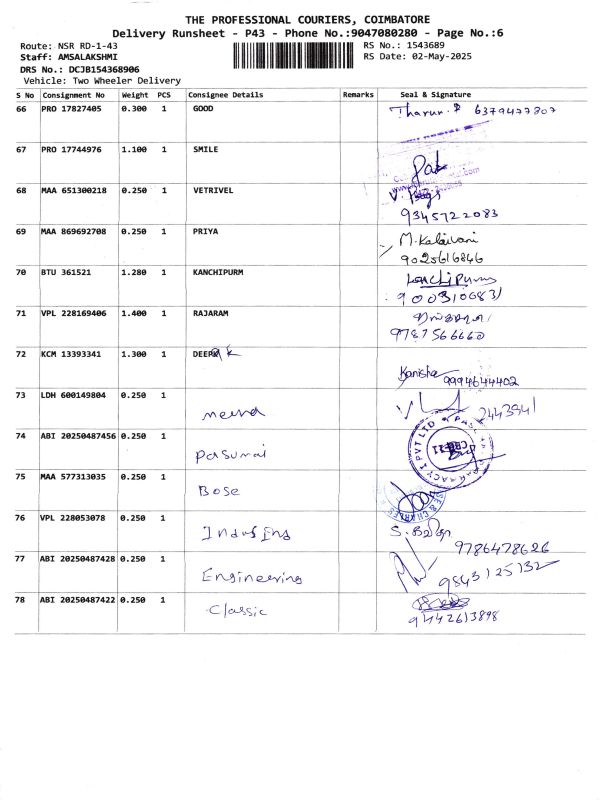 THE PROFESSIONAL COURIERS, COIMBATORE
Delivery Runsheet - P43 - Phone No.:9047080280 - Page No.:6
Route: NSR RD-1-43
RS No.: 1543689
Staff: AMSALAKSHMI
RS Date: 02-May-2025
DRS No.: DCJB154368906
Vehicle: Two Wheeler Delivery
S No Consignment No Weight PCS Consignee Details Remarks Seal & Signature
66 PRO 17827405 0.300 1 GOOD Tharun.P 6379477807
67 PRO 17744976 1.100 1 SMILE
68 MAA 651300218 0.250 1 VETRIVEL
9345722083
69 MAA 869692708 0.250 1 PRIYA M.Kalaivani
9025616846
70 BTU 361521 1.280 1 KANCHIPURM KanchiPurm
9003106831
71 VPL 228169406 1.400 1 RAJARAM
9787566660
72 KCM 13393341 1.300 1 DEEPAK
Kanisha 9994644402
73 LDH 600149804 0.250 1
meena 2443841
74 ABI 20250487456 0.250 1
Pasumai PVT LTD
75 MAA 577313035 0.250 1
Bose
76 VPL 228053078 0.250 1
IndusIns S. Balaji
9786478626
77 ABI 20250487428 0.250 1
Engineering 9843125132
78 ABI 20250487422 0.250 1
Classic 9442613898